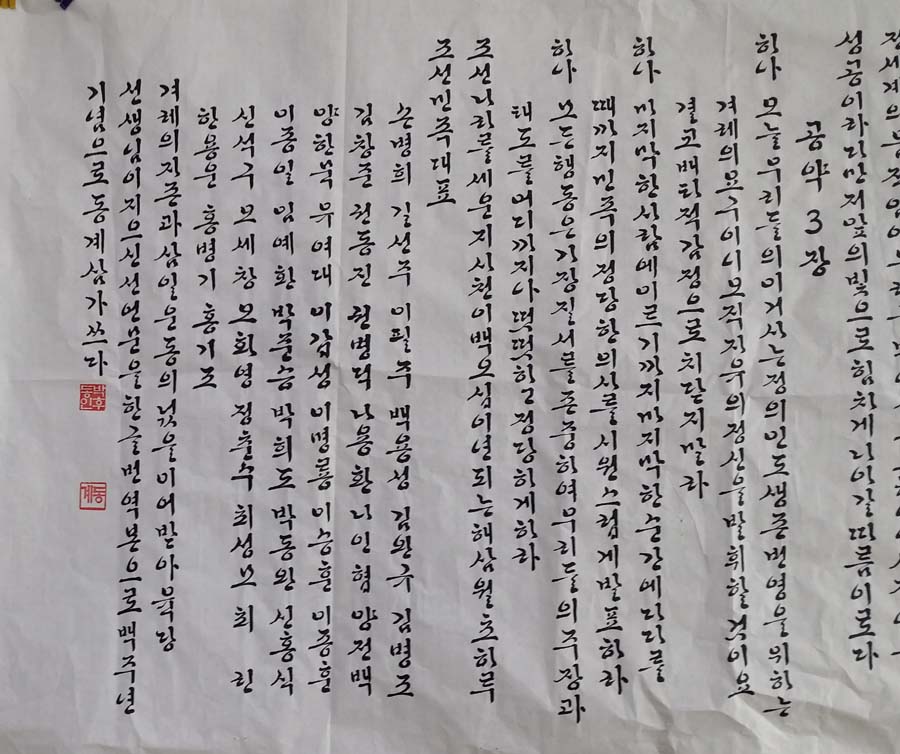 성공이라다만저앞의빛으로힘차게나아갈따름이로다
공약 3장
하나 오늘우리들의이거사는정의인도생존번영을위하는
겨레의요구이니오직자유의정신을발휘할것이요
결코배타적감정으로치닫지말라
하나 마지막한사람에이르기까지마지막한순간에다다를
때까지민족의정당한의사를시원스럽게발표하라
하나 모든행동은가장질서를존중하여우리들의주장과
태도를어디까지나떳떳하고정당하게하라
조선나라를세운지사천이백오십이년되는해삼월초하루
조선민족대표
손병희 길선주 이필주 백용성 김완규 김병조
김창준 권동진 권병덕 나용환 나인협 양전백
양한묵 유여대 이갑성 이명룡 이승훈 이종훈
이종일 임예환 박준승 박희도 박동완 신홍식
신석구 오세창 오화영 정춘수 최성모 최 린
한용운 홍병기 홍기조
겨레의자존과삼일운동의넋을이어받아육당
선생님이지으신선언문을한글번역본으로백주년
기념으로동계삼가쓰다
동계